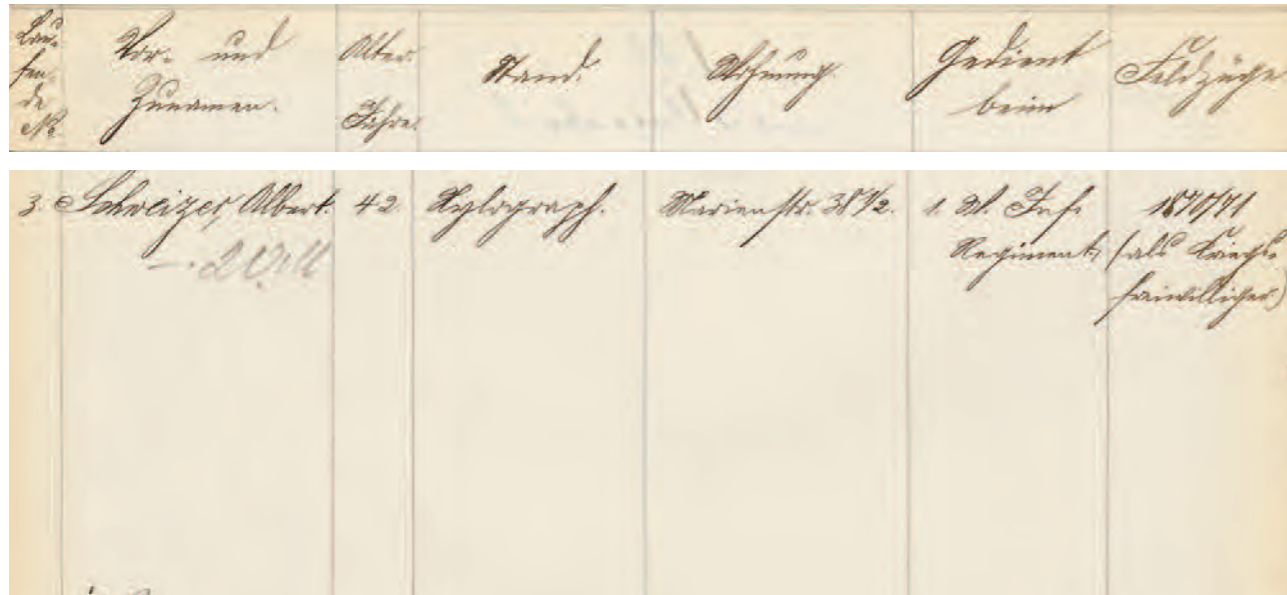 Lau-
fen-
de
No.
Vor- und
Zunamen.
Alter.
Jahre.
Stand.
Wohnung.
Gedient
beim
Feldzüge
3. Schweizer, Albert. 42. Xylograph. Marienstr. 38 1/2. 1. W. Inf. 1870/71
Regiment. (als Kriegs-
freiwilliger)